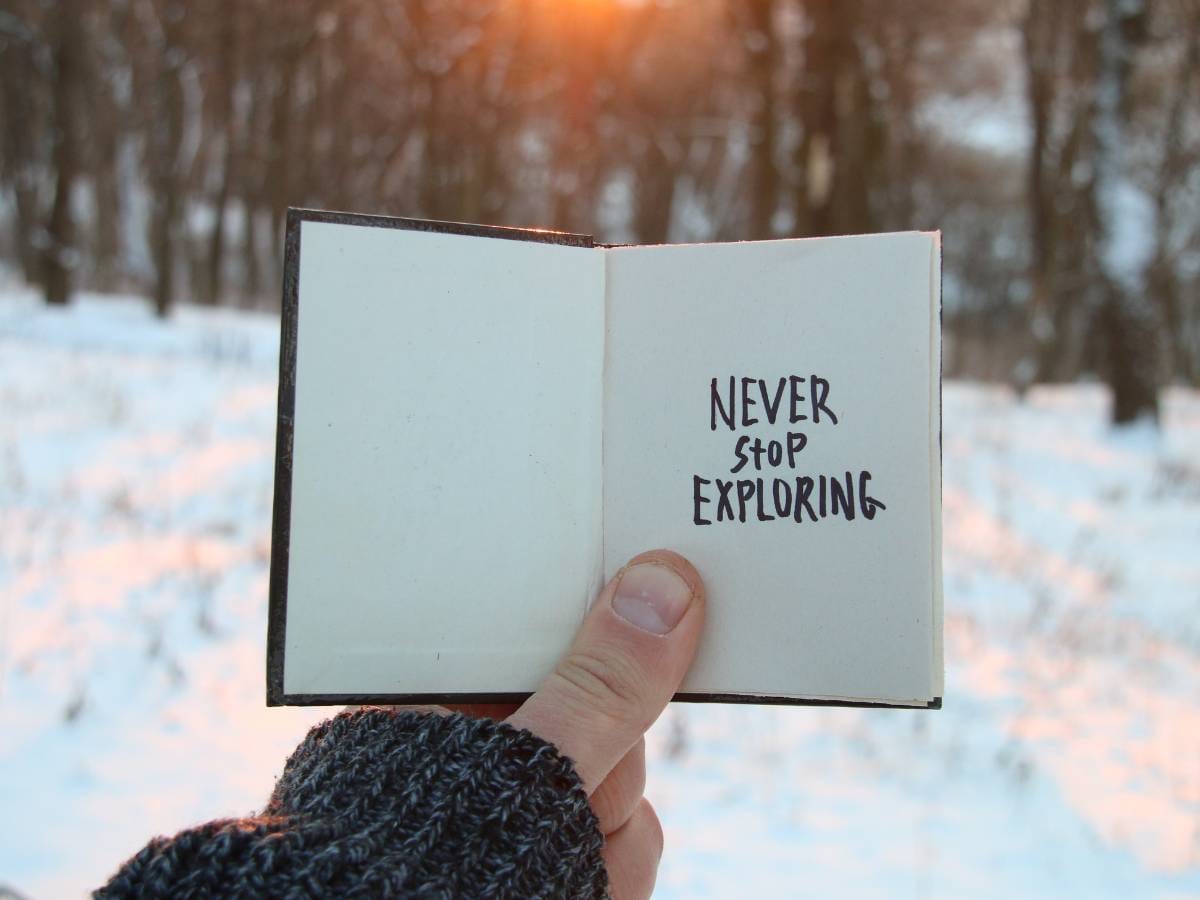 NEVER
stoP
EXPLORING